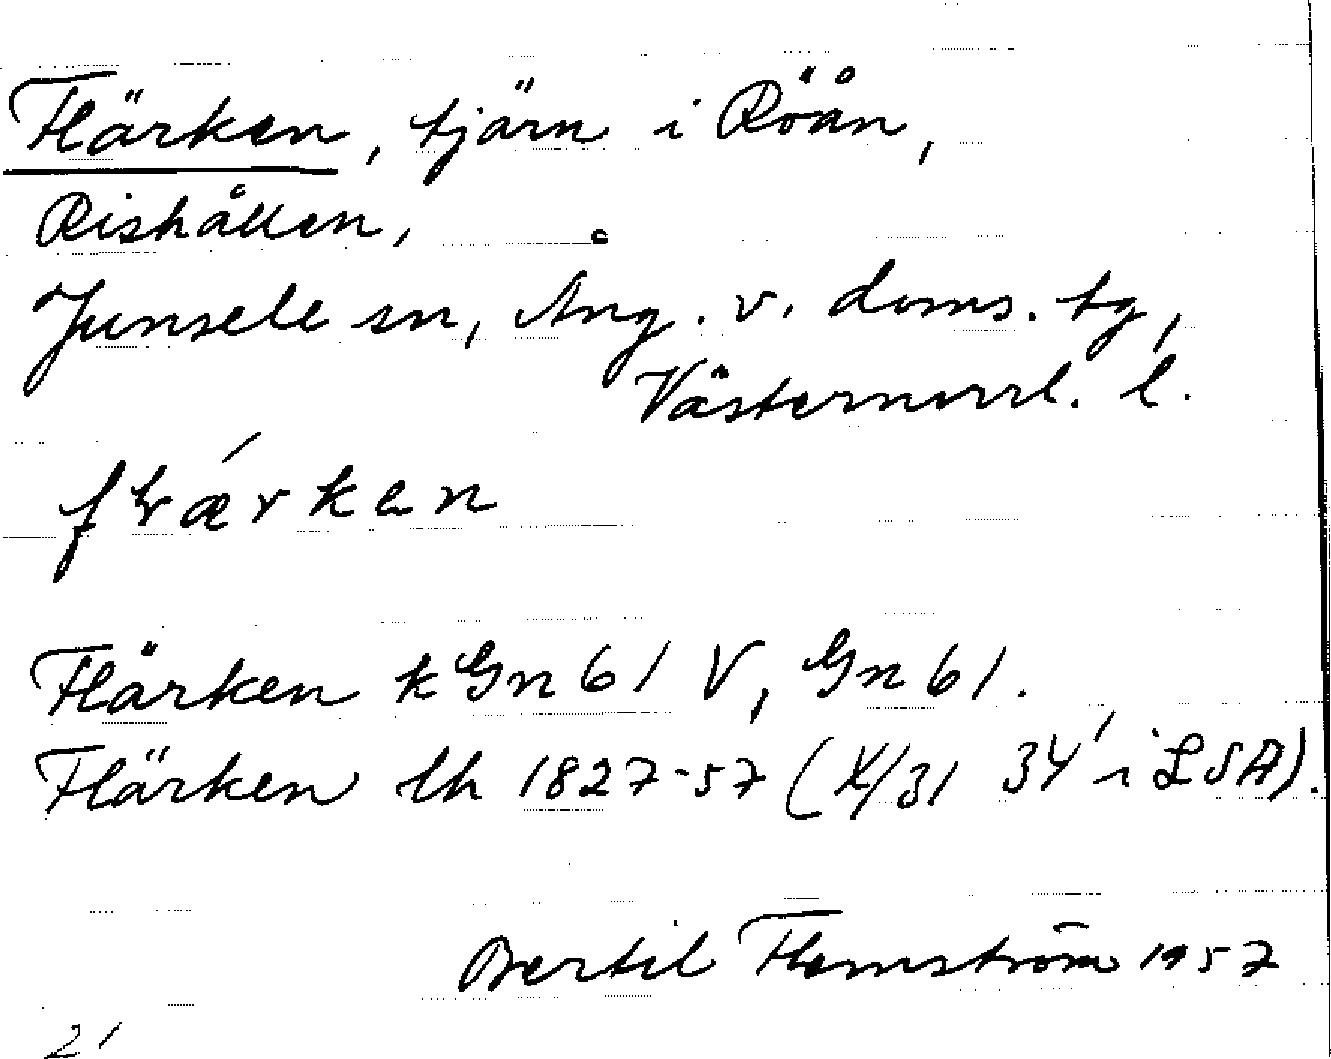 Flärken, tjärn i Röån,
Rishållen,
Junsele sn, Ång. v. doms. tg,
Västernorrl. l.
flǽrken
Flärken k Gn 61 V, Gn 61.
Flärken lh 1827-57 (X/31 34' i LSA).
Bertil Flemström 1957
21